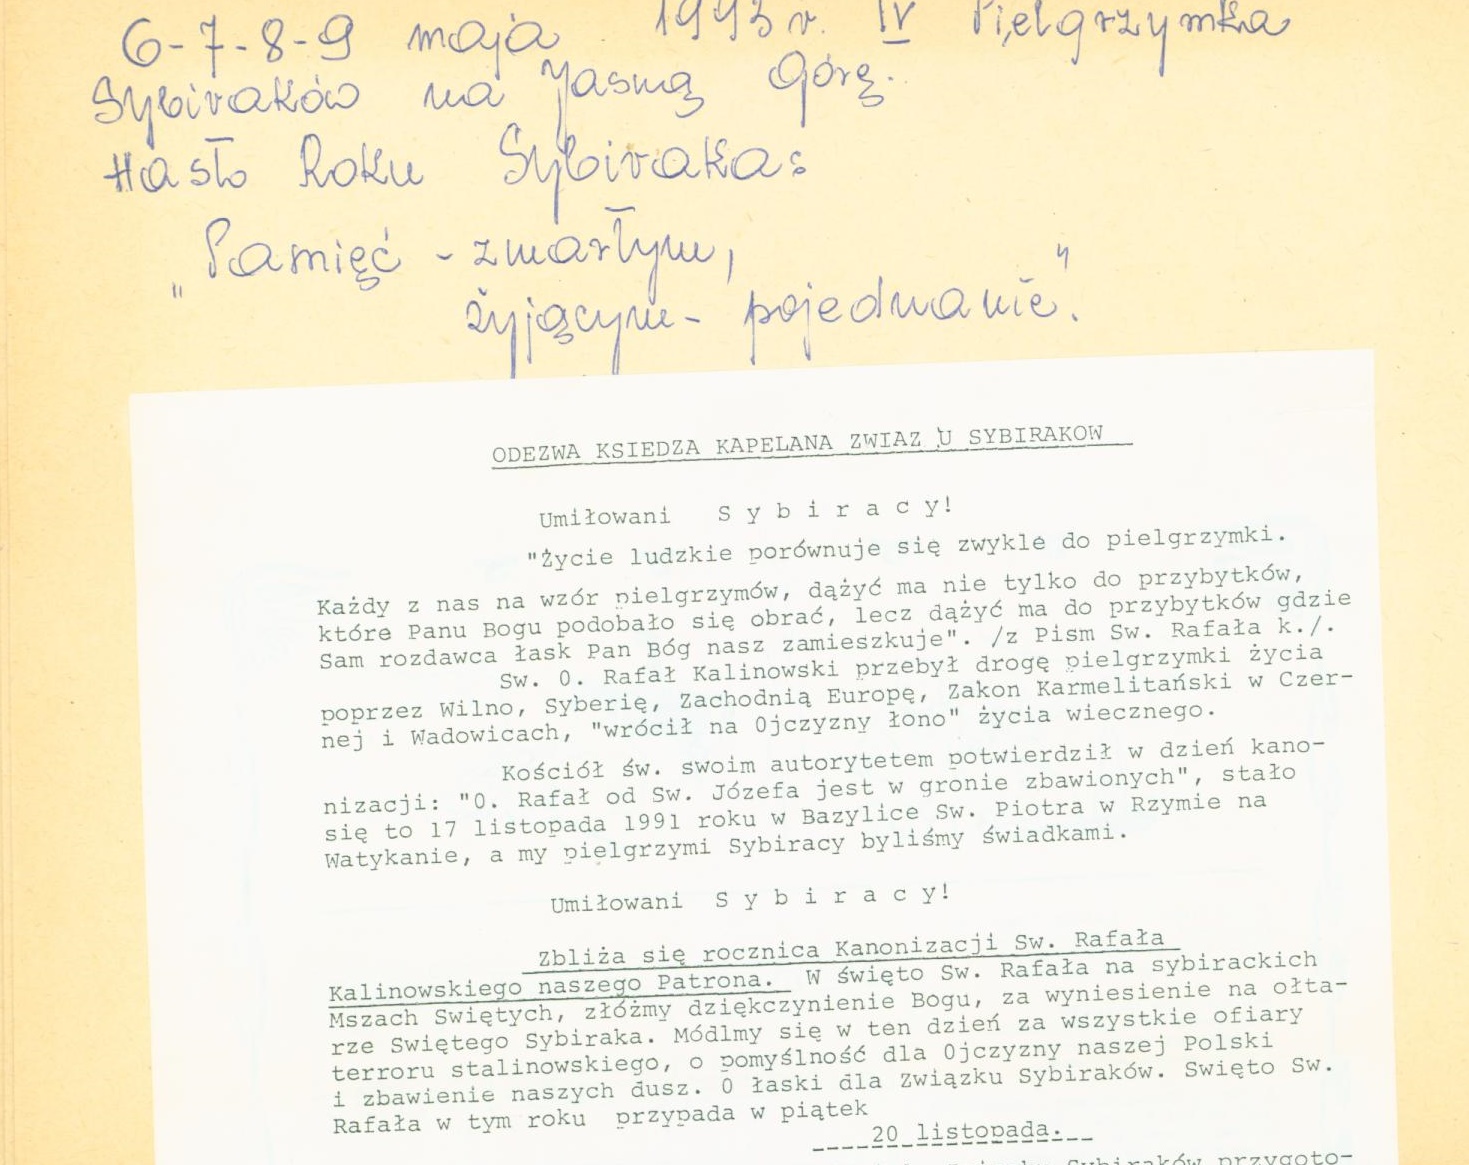 6-7-8-9 maja 1993 r. IV Pielgrzymka
Sybiraków na Jasną Górę.
Hasło Roku Sybiraka:
„Pamięć - zmarłym,
żyjącym - pojednanie."
ODEZWA KSIEDZA KAPELANA ZWIAZ U SYBIRAKOW
Umiłowani S y b i r a c y!
"Życie ludzkie porównuje się zwykle do pielgrzymki.
Każdy z nas na wzór pielgrzymów, dążyć ma nie tylko do przybytków,
które Panu Bogu podobało się obrać, lecz dążyć ma do przybytków gdzie
Sam rozdawca łask Pan Bóg nasz zamieszkuje". /z Pism Sw. Rafała k./.
Sw. O. Rafał Kalinowski przebył drogę pielgrzymki życia
poprzez Wilno, Syberię, Zachodnią Europę, Zakon Karmelitański w Czer-
nej i Wadowicach, "wrócił na Ojczyzny łono" życia wiecznego.
Kościół św. swoim autorytetem potwierdził w dzień kano-
nizacji: "O. Rafał od Sw. Józefa jest w gronie zbawionych", stało
się to 17 listopada 1991 roku w Bazylice Sw. Piotra w Rzymie na
Watykanie, a my pielgrzymi Sybiracy byliśmy świadkami.
Umiłowani S y b i r a c y!
Zbliża się rocznica Kanonizacji Sw. Rafała
Kalinowskiego naszego Patrona. W święto Sw. Rafała na sybirackich
Mszach Swiętych, złóżmy dziękczynienie Bogu, za wyniesienie na ołta-
rze Swiętego Sybiraka. Módlmy się w ten dzień za wszystkie ofiary
terroru stalinowskiego, o pomyślność dla Ojczyzny naszej Polski
i zbawienie naszych dusz. O łaski dla Związku Sybiraków. Swięto Sw.
Rafała w tym roku przypada w piątek
20 listopada.
Sybiraków przygoto-